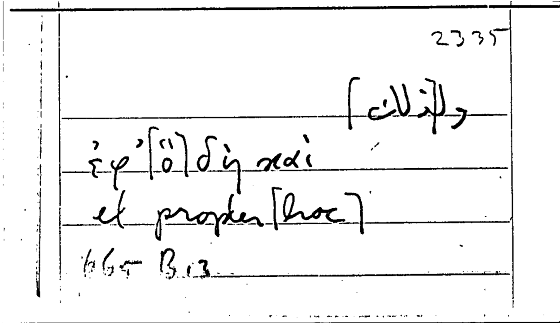 2335
و[لذلك]
ἐφ' [ὃ] δὴ καὶ
et propter [hoc]
665 B 13